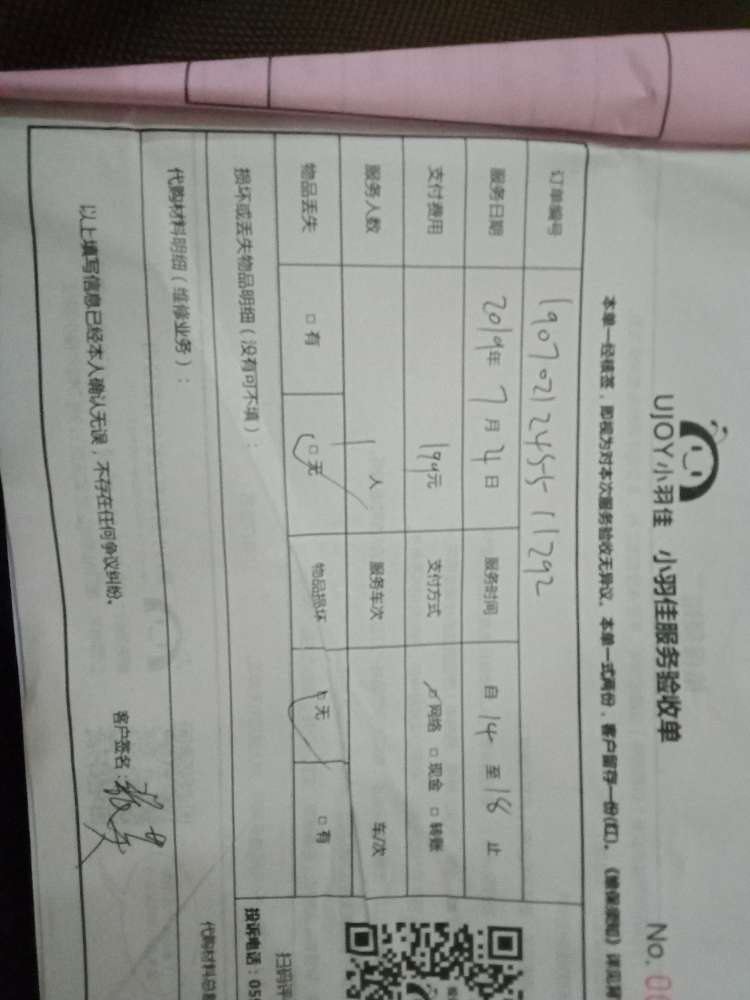 UJOY小羽佳 小羽佳服务验收单
No. 0
本单一经核签，即视为对本次服务验收无异议。本单一式两份，客户留存一份(红)。
订单编号 19070212455-11292
服务日期 2019年 7月 4日 服务时间 自 14 至 18 止
支付费用 199元 支付方式 网络 □ 现金 □ 转账
服务人数 1 人 服务车次 车/次
物品丢失 □ 有 □ 无 物品损坏 □ 无 □ 有
损坏或丢失物品明细（没有可不填）：
代购材料明细（维修业务）：
代购材料总
以上填写信息已经本人确认无误，不存在任何争议纠纷。
客户签名：
扫码评
投诉电话：05